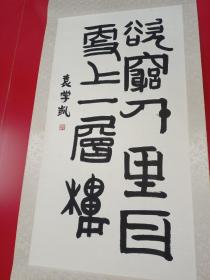 欲窮千里目
更上一層樓
袁学凯